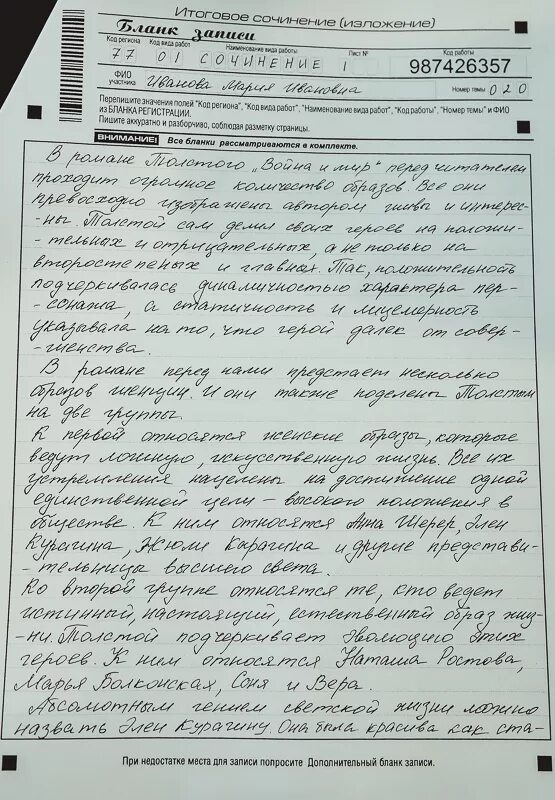 Итоговое сочинение (изложение)
Бланк записи
Код региона Код вида работ Наименование вида работы Лист № Код работы
77 01 СОЧИНЕНИЕ 1 987426357
ФИО участника Иванова Мария Ивановна Номер темы 020
Перепишите значения полей "Код региона", "Код вида работ", "Наименование вида работ", "Код работы", "Номер темы" и ФИО
из БЛАНКА РЕГИСТРАЦИИ.
Пишите аккуратно и разборчиво, соблюдая разметку страницы.
ВНИМАНИЕ! Все бланки рассматриваются в комплекте.
В романе Толстого „Война и мир" перед читателем
проходит огромное количество образов. Все они
превосходно изображены автором живы и интерес-
-ны. Толстой сам делил своих героев на положи-
-тельных и отрицательных, а не только на
второстепеных и главных. Так, положительность
подчеркивалась динамичностью характера пер-
-сонажа, а статичность и лицемерность
указывала на то, что герой далек от совер-
-шенства.
В романе перед нами предстает несколько
образов женщин. И они также поделены Толстым
на две группы.
К первой относятся женские образы, которые
ведут ложную, искусственную жизнь. Все их
устремления нацелены на достижение одной
единственной цели – высокого положения в
обществе. К ним относятся Анна Шерер, Элен
Курагина, Жюли Карагина и другие представи-
-тельницы высшего света.
Ко второй группе относятся те, кто ведет
истинный, настоящий, естественный образ жиз-
-ни. Толстой подчеркивает эволюцию этих
героев. К ним относятся Наташа Ростова,
Марья Болконская, Соня и Вера.
Абсолютным гением светской жизни можно
назвать Элен Курагину. Она была красива как ста-
При недостатке места для записи попросите Дополнительный бланк записи.